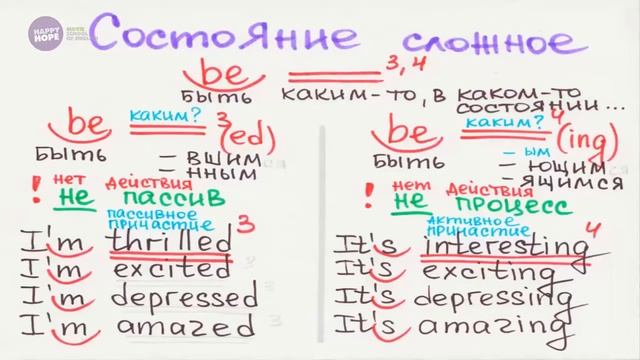 HAPPY HOPE
Состояние сложное
be 3,4
быть каким-то, в каком-то
состоянии...
be каким? 3 (ed)
быть – вшим
– нным
! нет действия
не пассив
пассивное
причастие
I'm thrilled 3
I'm excited
I'm depressed
I'm amazed
be каким? 4 (ing)
быть – ым
– ющим
– ящимся
! нет действия
не процесс
активное
причастие
It's interesting 4
It's exciting
It's depressing
It's amazing